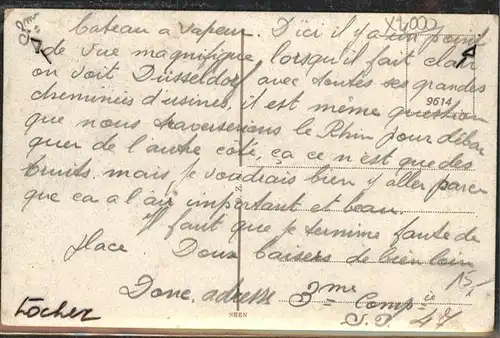 2me
X2000
bateau à vapeur. D'ici il y a un point
de vue magnifique, lorsqu'il fait clair
on voit Düsseldorf avec toutes ses grandes
cheminées d'usines, il est même question
9614
que nous traverserions le Rhin pour débar
quer de l'autre côté, ça ce n'est que des
bruits, mais je voudrais bien y aller parce
que ça a l'air important et beau.
Il faut que je termine faute de
place Doux baisers de bien loin
Donc, adresse 3me Compie
S.P. 47
Locher